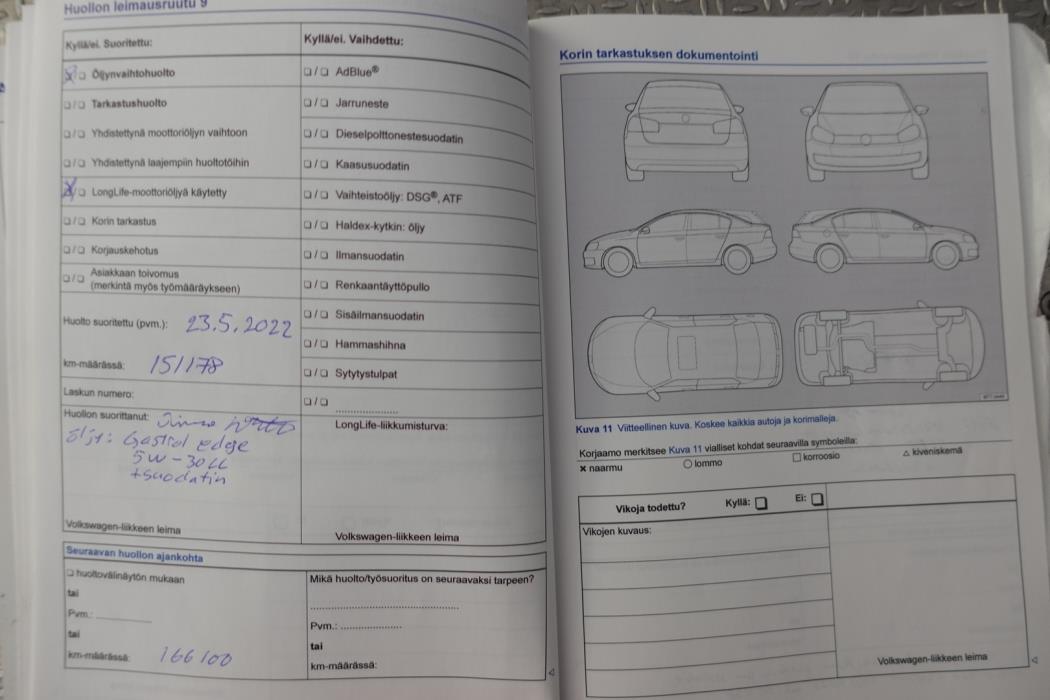 Huollon leimausruutu 9
Kyllä/ei. Suoritettu:
❏ Öljynvaihtohuolto
❏ / ❏ Tarkastushuolto
❏ / ❏ Yhdistettynä moottoriöljyn vaihtoon
❏ / ❏ Yhdistettynä laajempiin huoltotöihin
❏ LongLife-moottoriöljyä käytetty
❏ / ❏ Korin tarkastus
❏ / ❏ Korjauskehotus
❏ / ❏ Asiakkaan toivomus
(merkintä myös työmääräykseen)
Huolto suoritettu (pvm.): 23.5.2022
km-määrässä: 151178
Laskun numero:
Huollon suorittanut:
Öljy: Castrol edge
5W-30 LL
+suodatin
Volkswagen-liikkeen leima
Kyllä/ei. Vaihdettu:
❏ / ❏ AdBlue®
❏ / ❏ Jarruneste
❏ / ❏ Dieselpolttonestesuodatin
❏ / ❏ Kaasusuodatin
❏ / ❏ Vaihteistoöljy: DSG®, ATF
❏ / ❏ Haldex-kytkin: öljy
❏ / ❏ Ilmansuodatin
❏ / ❏ Renkaantäyttöpullo
❏ / ❏ Sisäilmansuodatin
❏ / ❏ Hammashihna
❏ / ❏ Sytytystulpat
❏ / ❏ ....................
LongLife-liikkumisturva:
Volkswagen-liikkeen leima
Seuraavan huollon ajankohta
❏ huoltovälinäytön mukaan
tai
Pvm.:
tai
km-määrässä: 166100
Mikä huolto/työsuoritus on seuraavaksi tarpeen?
Pvm.: ....................
tai
km-määrässä:
Korin tarkastuksen dokumentointi
Kuva 11 Viitteellinen kuva. Koskee kaikkia autoja ja korimalleja.
Korjaamo merkitsee Kuva 11 vialliset kohdat seuraavilla symboleilla:
× naarmu ○ lommo □ korroosio △ kiveniskemä
Vikoja todettu? Kyllä: ❏ Ei: ❏
Vikojen kuvaus:
Volkswagen-liikkeen leima